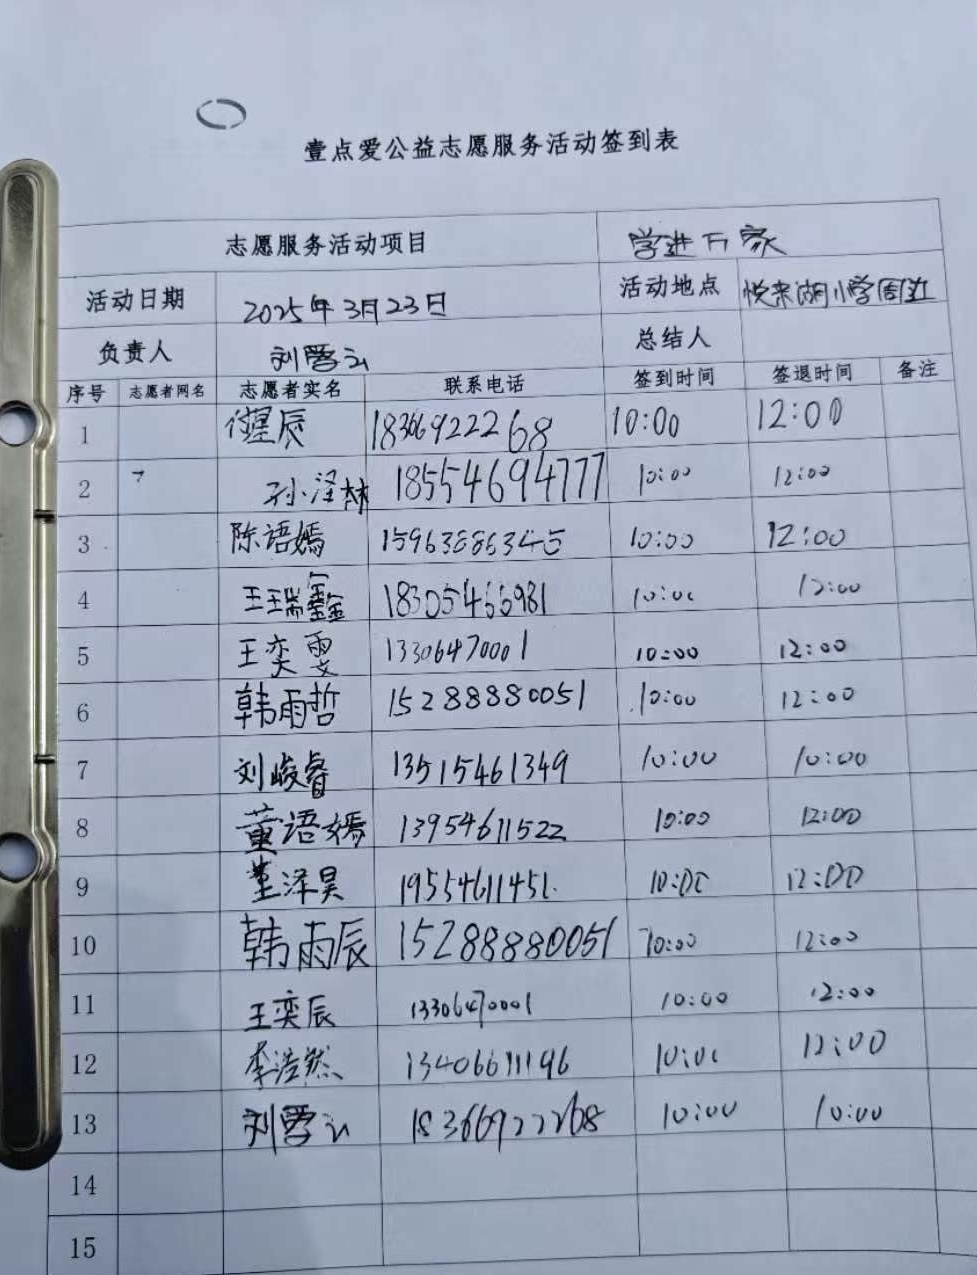 壹点爱公益志愿服务活动签到表
志愿服务活动项目 学进万家
活动日期 2025年3月23日 活动地点 悦来湖小学周边
负责人 刘雪云 总结人
序号 志愿者网名 志愿者实名 联系电话 签到时间 签退时间 备注
1 星辰 18366922268 10:00 12:00
2 孙泽林 18554694777 10:00 12:00
3 陈语嫣 15963886345 10:00 12:00
4 王瑞鑫 18305466981 10:00 12:00
5 王奕雯 13306470001 10:00 12:00
6 韩雨哲 15288880051 10:00 12:00
7 刘峻睿 13515461349 10:00 10:00
8 董语嫣 13954611522 10:00 12:00
9 董泽昊 19554611451 10:00 12:00
10 韩雨辰 15288880051 10:00 12:00
11 王奕辰 13306470001 10:00 12:00
12 李浩然 13406611196 10:00 12:00
13 刘雪云 18366922268 10:00 10:00
14
15